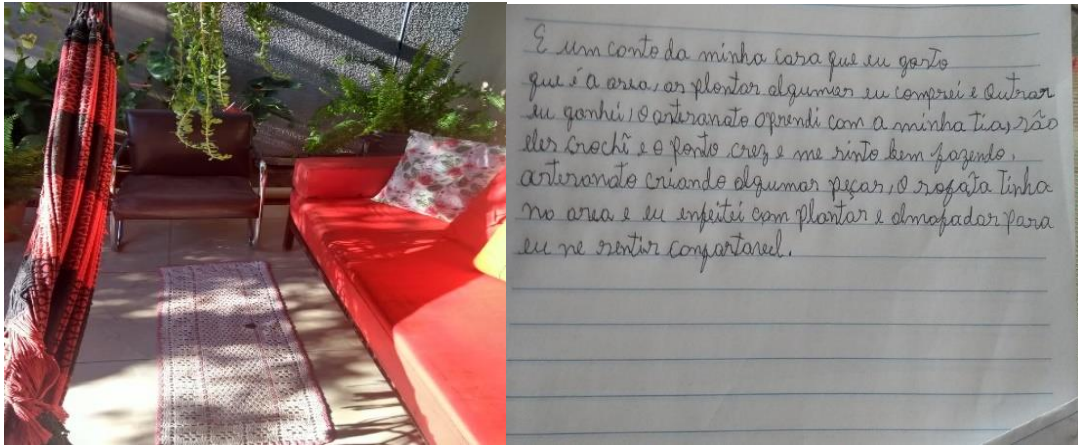 E um conto da minha casa que eu gosto
que é a area, as plantas algumas eu comprei e outras
eu ganhei, o artesanato aprendi com a minha tia, são
eles crochê e o ponto crez e me sinto bem fazendo.
artesanato criando algumas peças, o sofá ta tinha
na area e eu enfeitei com plantas e almofadas para
eu me sentir confortavel.